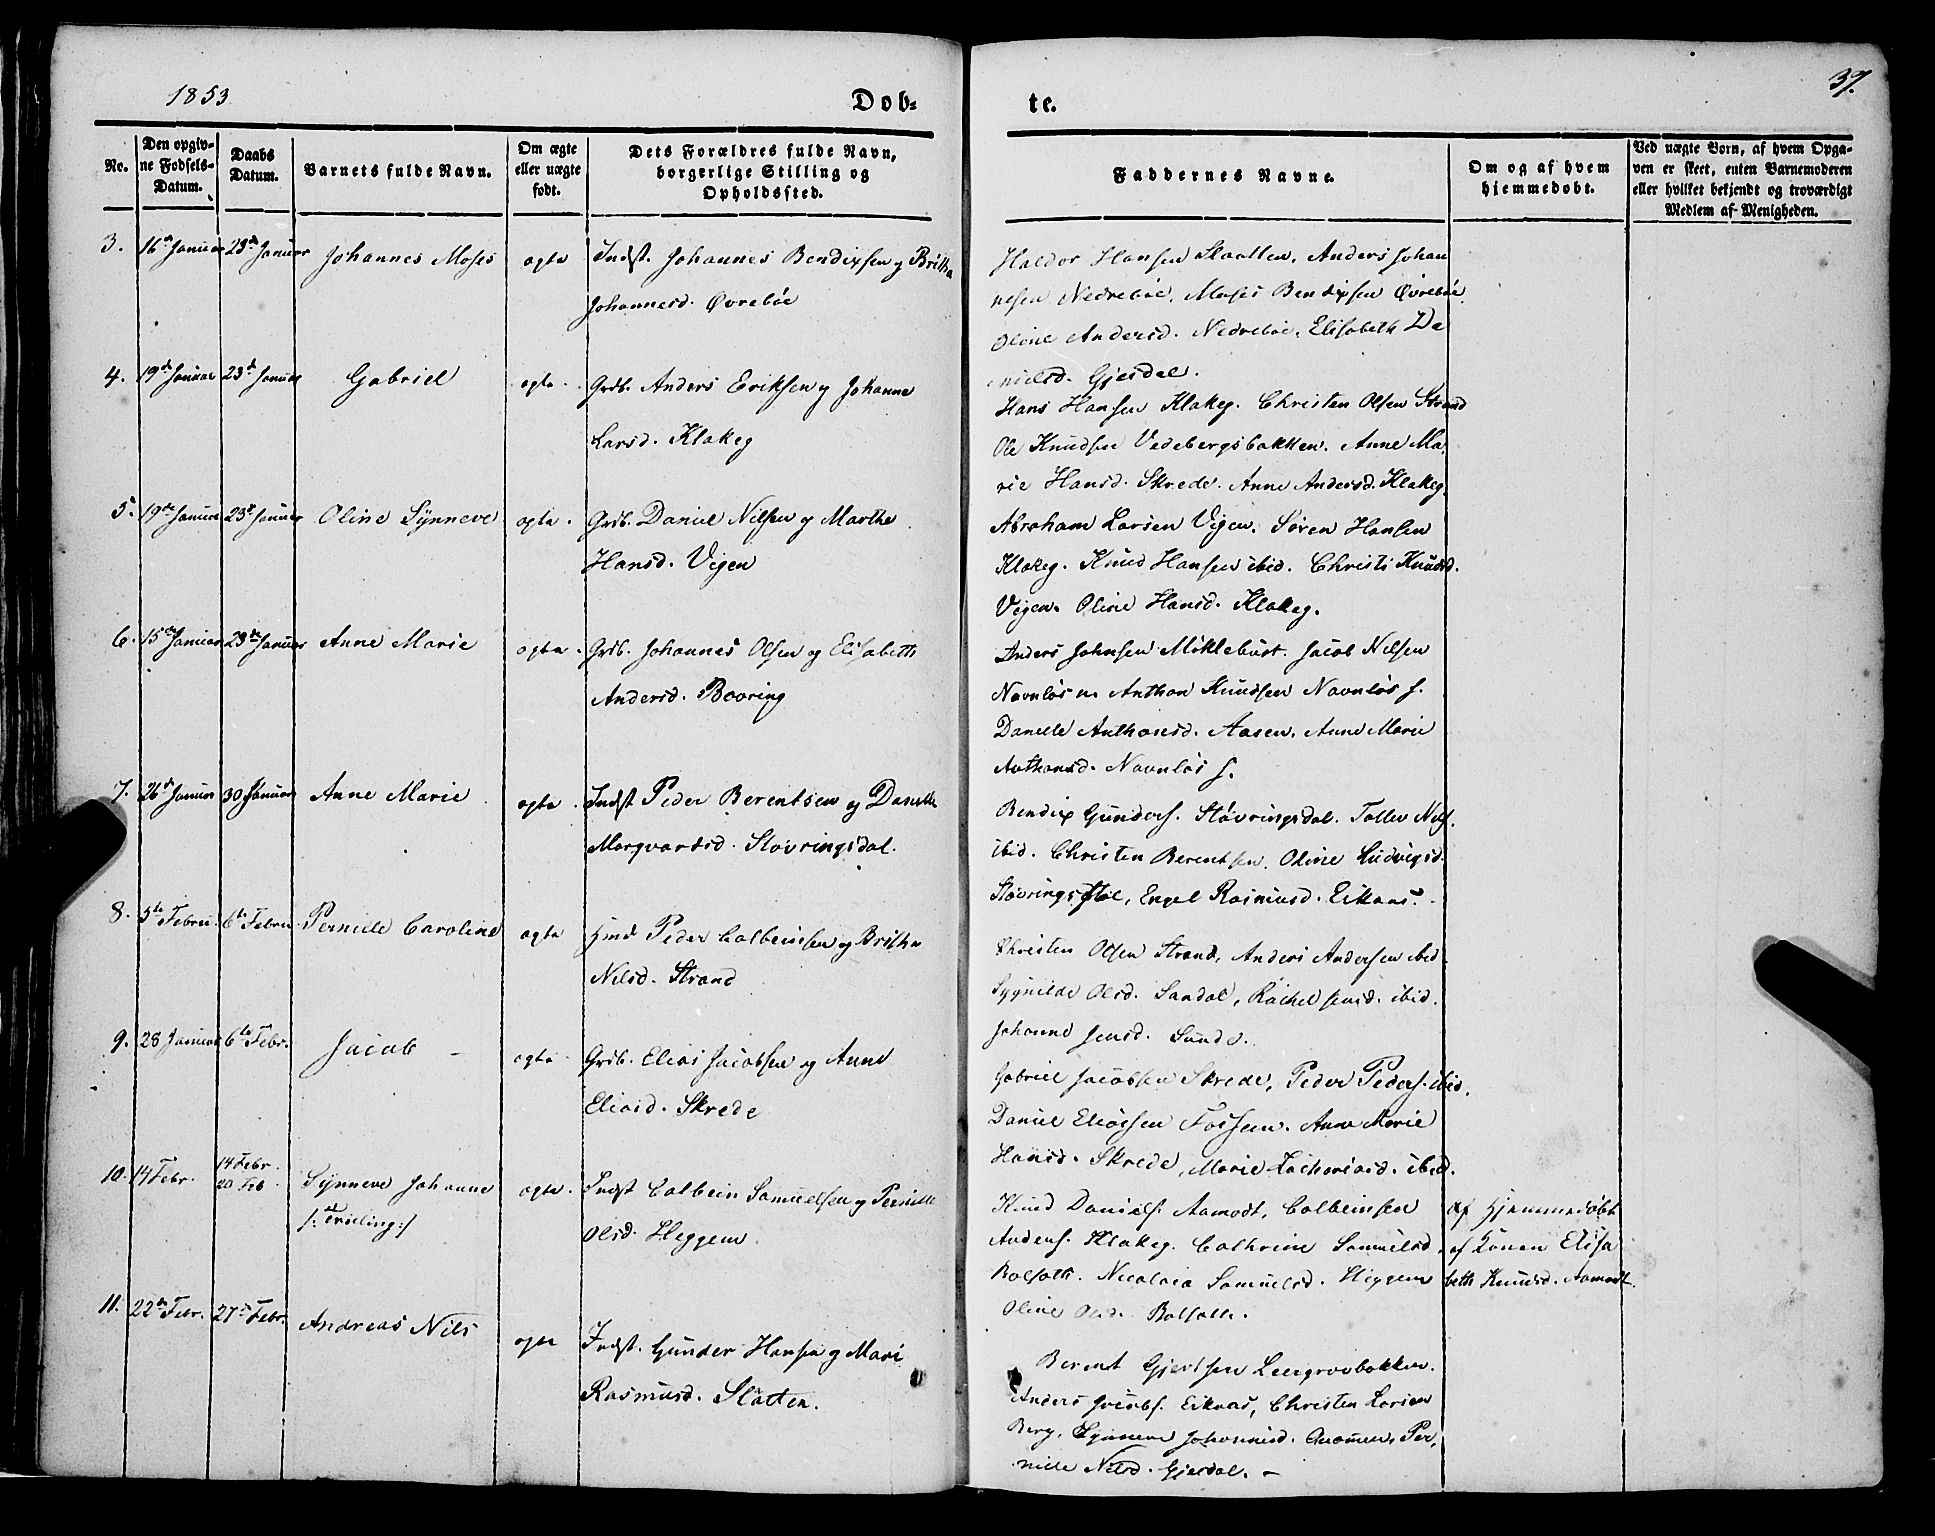 1853
Døb-
te.
37.
No.
Den opgivne Fødsels-Datum.
Daabs Datum.
Barnets fulde Navn.
Om ægte eller uægte født.
Dets Forældres fulde Navn, borgerlige Stilling og Opholdssted.
Faddernes Navne.
Om og af hvem hjemmedøbt.
Ved uægte Børn, af hvem Opgaven er skeet, enten Barnemoderen eller hvilket bekjendt og troværdigt Medlem af Menigheden.
3. 16de Januar 23de Januar Johannes Moses ægte Indst. Johannes Bendixsen og Britha
Johannesd. Øvrebøe
Haldor Hansen Slaatten, Anders Johan
nesen Nedrebøe, Moses Bendixsen Øvrebøe
Oline Andersd. Nedrebøe, Elisabeth Da
nielsd. Gjesdal.
4. 19de Januar 23de Januar Gabriel ægte Grdb. Anders Eriksen og Johanne
Larsd. Klakeg
Hans Hansen Klakeg. Christen Olsen Strand
Ole Knudsen Vedebergsbakken. Anne Ma,
rie Hansd. Skrede. Anne Andersd. Klakeg.
5. 19de Januar 23de Januar Oline Synneve ægte. Grdb. Daniel Nilsen og Marthe
Hansd. Vigen
Abraham Larsen Vigen. Søren Hansen
Klakeg. Knud Hansen ibid. Christi Knudsd.
Vigen. Oline Hansd. Klakeg.
6. 15de Januar 23de Januar Anne Marie ægte. Grdb. Johannes Olsen og Elisabeth
Andersd. Böoring
Anders Johnsen Möklebust. Jacob Nilsen
Navnløs n. Anthon Knudsen Navnløs s.
Danielle Anthonsd. Aasen. Anne Marie
Anthonsd. Navnløs s.
7. 26de Januar 30 Januar Anne Marie ægte. Indst Peder Berentsen og Danielle
Margvardsd. Støvringsdal.
Bendix Gunders. Støvringsdal. Tollev Nils.
ibid. Christen Berentsen. Oline Ludvigsd.
Støvringsdal, Engel Rasmusd. Eiknas.
8. 5te Febru. 6te Febru. Pernille Caroline ægte Hmd Peder Colbeinsen og Britha
Nilsd. Strand
Christen Olsen Strand, Anders Andersen ibid.
Sygnilde Olsd. Sandal, Rachel Jensd. ibid.
Johanne Jensd. Sunde.
9. 28 Januar 6te Febr. Jacob ægte Grdb. Elias Jacobsen og Anne
Eliasd. Skrede
Gabriel Jacobsen Skrede, Peder Peders. ibid.
Daniel Eliassen Fossen. Anne Marie
Hansd. Skrede, Marie Zachariasd. ibid.
10. 14 Febr. 14 Febr. 20 Feb. Synneve Johanne ægte. Indst Colbein Samuelsen og Pernille
/: Trilling :/
Olsd. Heggem
Knud Daniels. Aamodt, Colbeinsen
Anders. Klakeg. Cathrine Samuelsd.
Bolsæth. Nicolaia Samuelsd. Heggem
Oline Olsd. Bolsæth.
af Hjemmedöbt
af Konen Elisa
beth Knudsd. Aamodt.
11. 22de Febr. 27de Febr. Andreas Nils ægte Indst. Gunder Hansen og Mari
Rasmusd. Slåtten.
Berent Gjertsen Leergrovbakken.
Anders Jacobs. Eiknas, Christen Larsen
Berg, Synneve Johannesd. Per,
nille Nilsd. Gjesdal. –